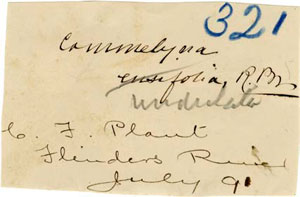 321
Commelyna
ensifolia, R.Br
undulata
C. F. Plant
Flinders River
July 91